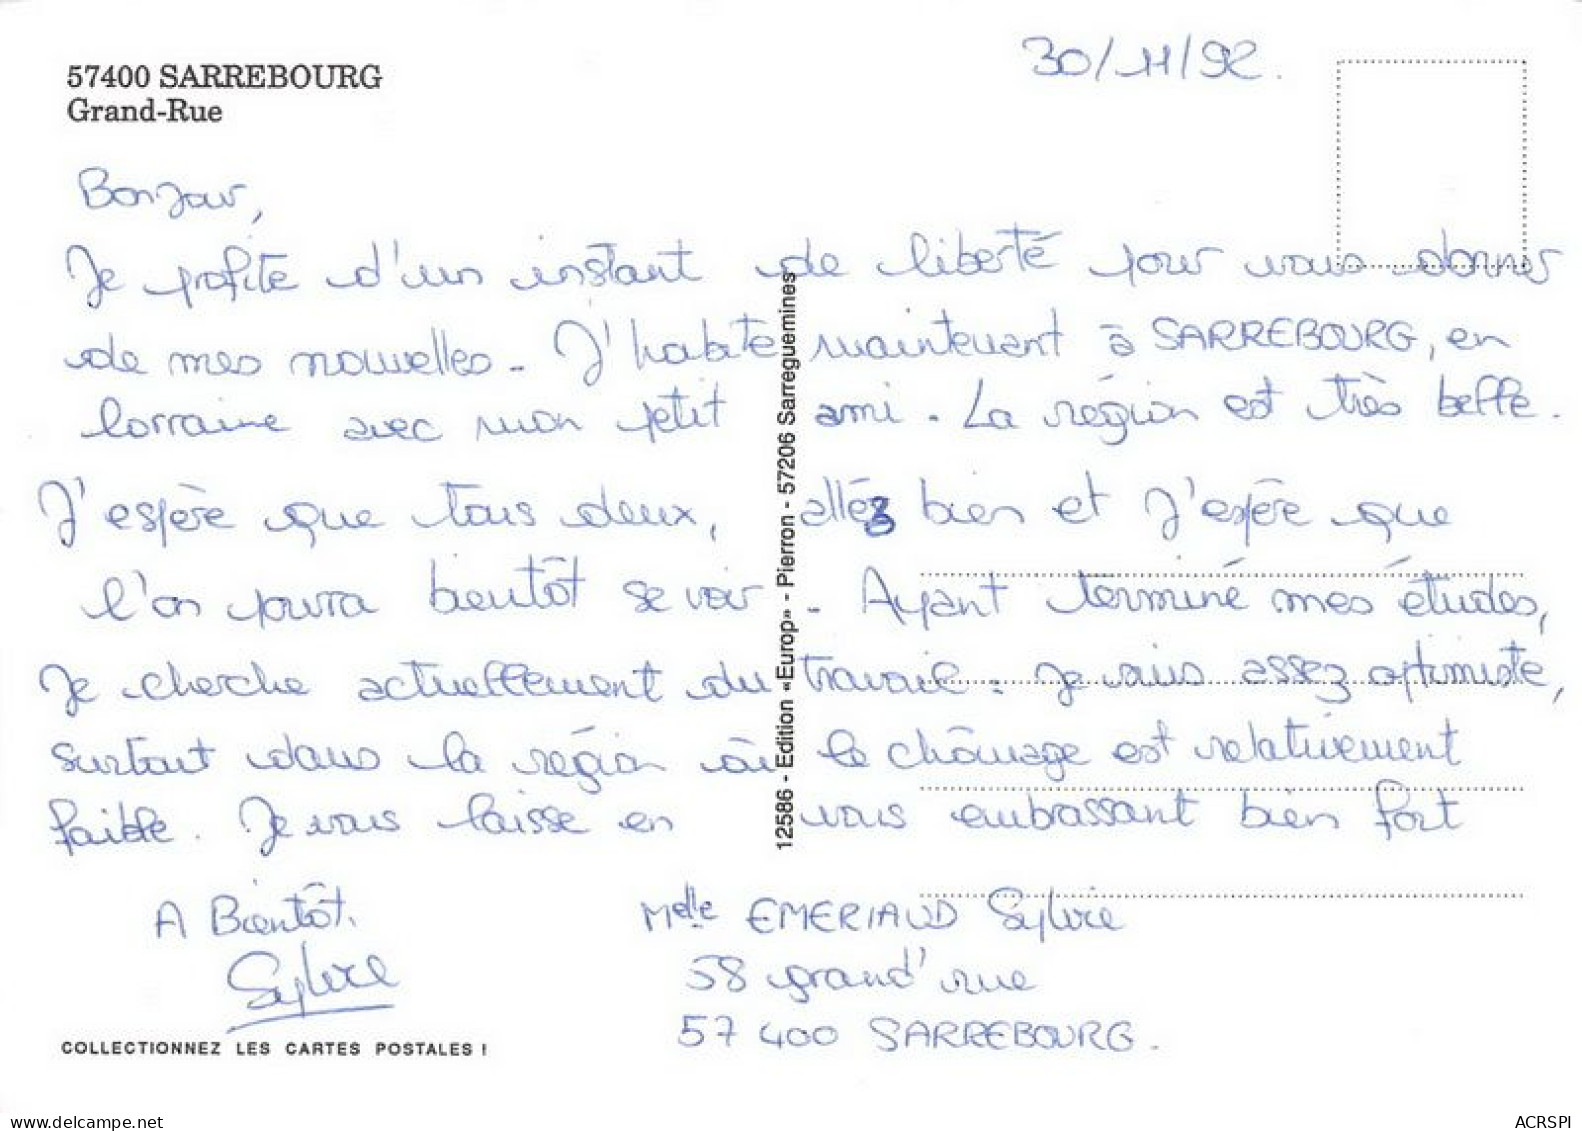 57400 SARREBOURG
Grand-Rue
30/11/92.
Bonjour,
Je profite d'un instant de liberté pour vous donner
de mes nouvelles. J'habite maintenant à SARREBOURG, en
lorraine avec mon petit ami. La région est très belle.
J'espère que tous deux, allez bien et j'espère que
l'on pourra bientôt se voir. Ayant terminé mes études,
Je cherche actuellement du travail. Je suis assez optimiste,
surtout dans la région où le chômage est relativement
faible. Je vous laisse en vous embrassant bien fort
A Bientôt.
Sylvie
Melle EMERIAUD Sylvie
58 grand'rue
57 400 SARREBOURG.
COLLECTIONNEZ LES CARTES POSTALES !
12586 - Edition «Europ» - Pierron - 57206 Sarreguemines
www.delcampe.net
ACRSPI